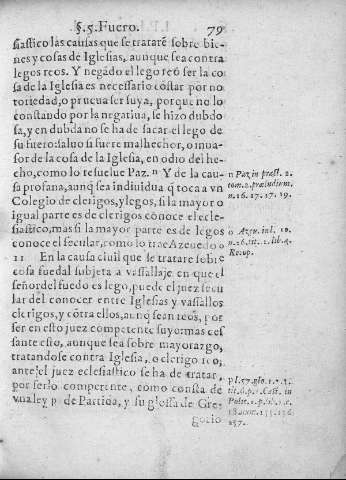 §.5. Fuero. 79
siastico las causas que se tratarẽ sobre bie-
nes y cosas de Iglesias, aunque sea contra
legos reos. Y negãdo el lego reo ser la co
sa de la Iglesia es necessario costar por no
toriedad, o prueua ser suya, porque no lo
constando por la negatiua, se hizo dubdo
sa, y en dubda no se ha de sacar el lego de
su fuero: saluo si fuere malhechor, o inua-
sor de la cosa de la Iglesia, en odio del he-
cho, como lo resuelue Paz. n Y de la cau
sa profana, aunq̃ sea indiuidua q̃ toca a vn
Colegio de clerigos, y legos, si la mayor o
igual parte es de clerigos conoce el ecle-
siastico, mas si la mayor parte es de legos
conoce el secular, como lo trae Azeuedo o
11 En la causa ciuil que se tratare sobre
cosa feudal subjeta a vassallaje en que el
señor del feudo es lego, puede el juez secu
lar del conocer entre Iglesias y vassallos
clerigos, y cõtra ellos, aunq̃ sean reos, por
ser en esto juez competente su y o mas ces
sante esto, aunque sea sobre mayorazgo,
tratandose contra Iglesia, o clerigo reo,
ante el juez eclesiastico se ha de tratar,
por serlo competente, como consta de
vna ley p de Partida, y su glossa de Gre-
gorio
n Paz in præst. 2.
tom. 2. præludium.
n. 16. 17. 17. 19.
o Azeu. in l. 10.
n. 26. tit. 1. lib. 4.
Recop.
p l. 57. glo. 1. 2. 3.
tit. 6. p. 1.
157.